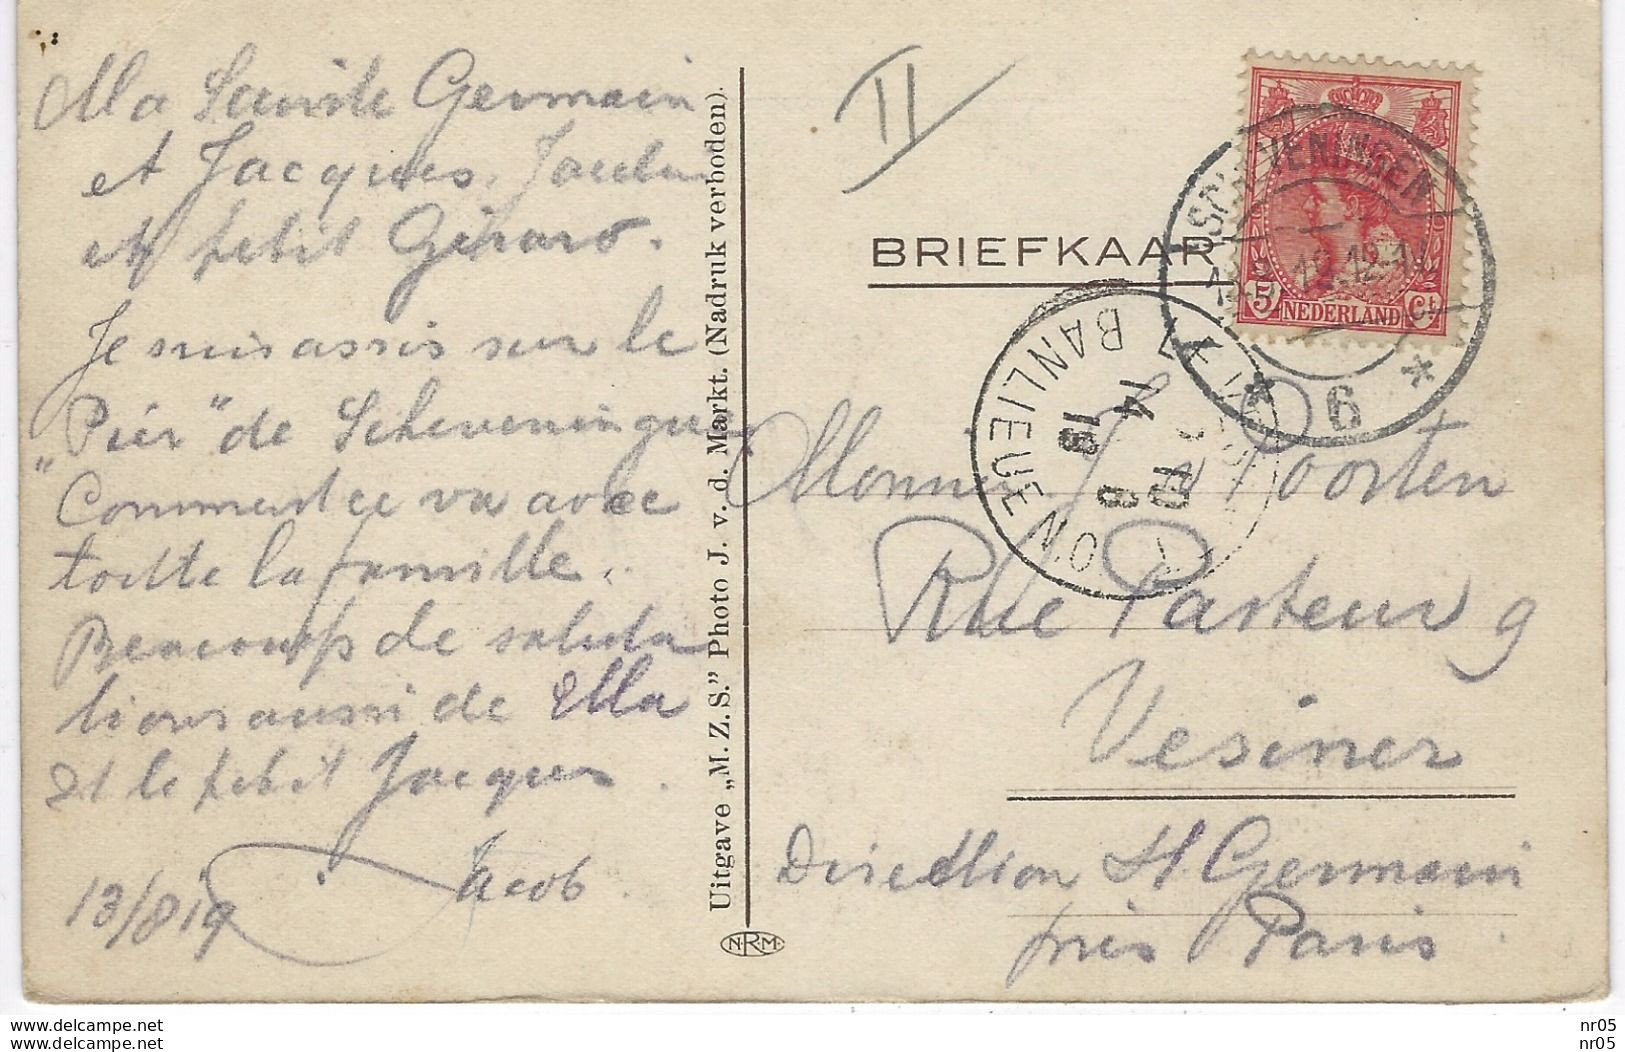 Ma Germain
et Jacques.
et petit Gérard.
Je suis assis sur le
„Pier" de Scheveningue
Comment ce va avec
toutte la famille.
Beaucoup de saluta
tions aussi de Ella
et le petit Jacques.
Jacob.
13/8 19
Uitgave „M. Z. S." Photo J. v. d. Markt. (Nadruk verboden).
N.R.M.
II
BRIEFKAAR
SCHEVENINGEN
12-1
* 6 *
5 Ct
NEDERLAND
BANLIEUE
14 8
19
Poorten
Rue Pasteur 9
Vesiner
Direction St Germain
près Paris
www.delcampe.net
www.delcampe.net
nr05
nr05